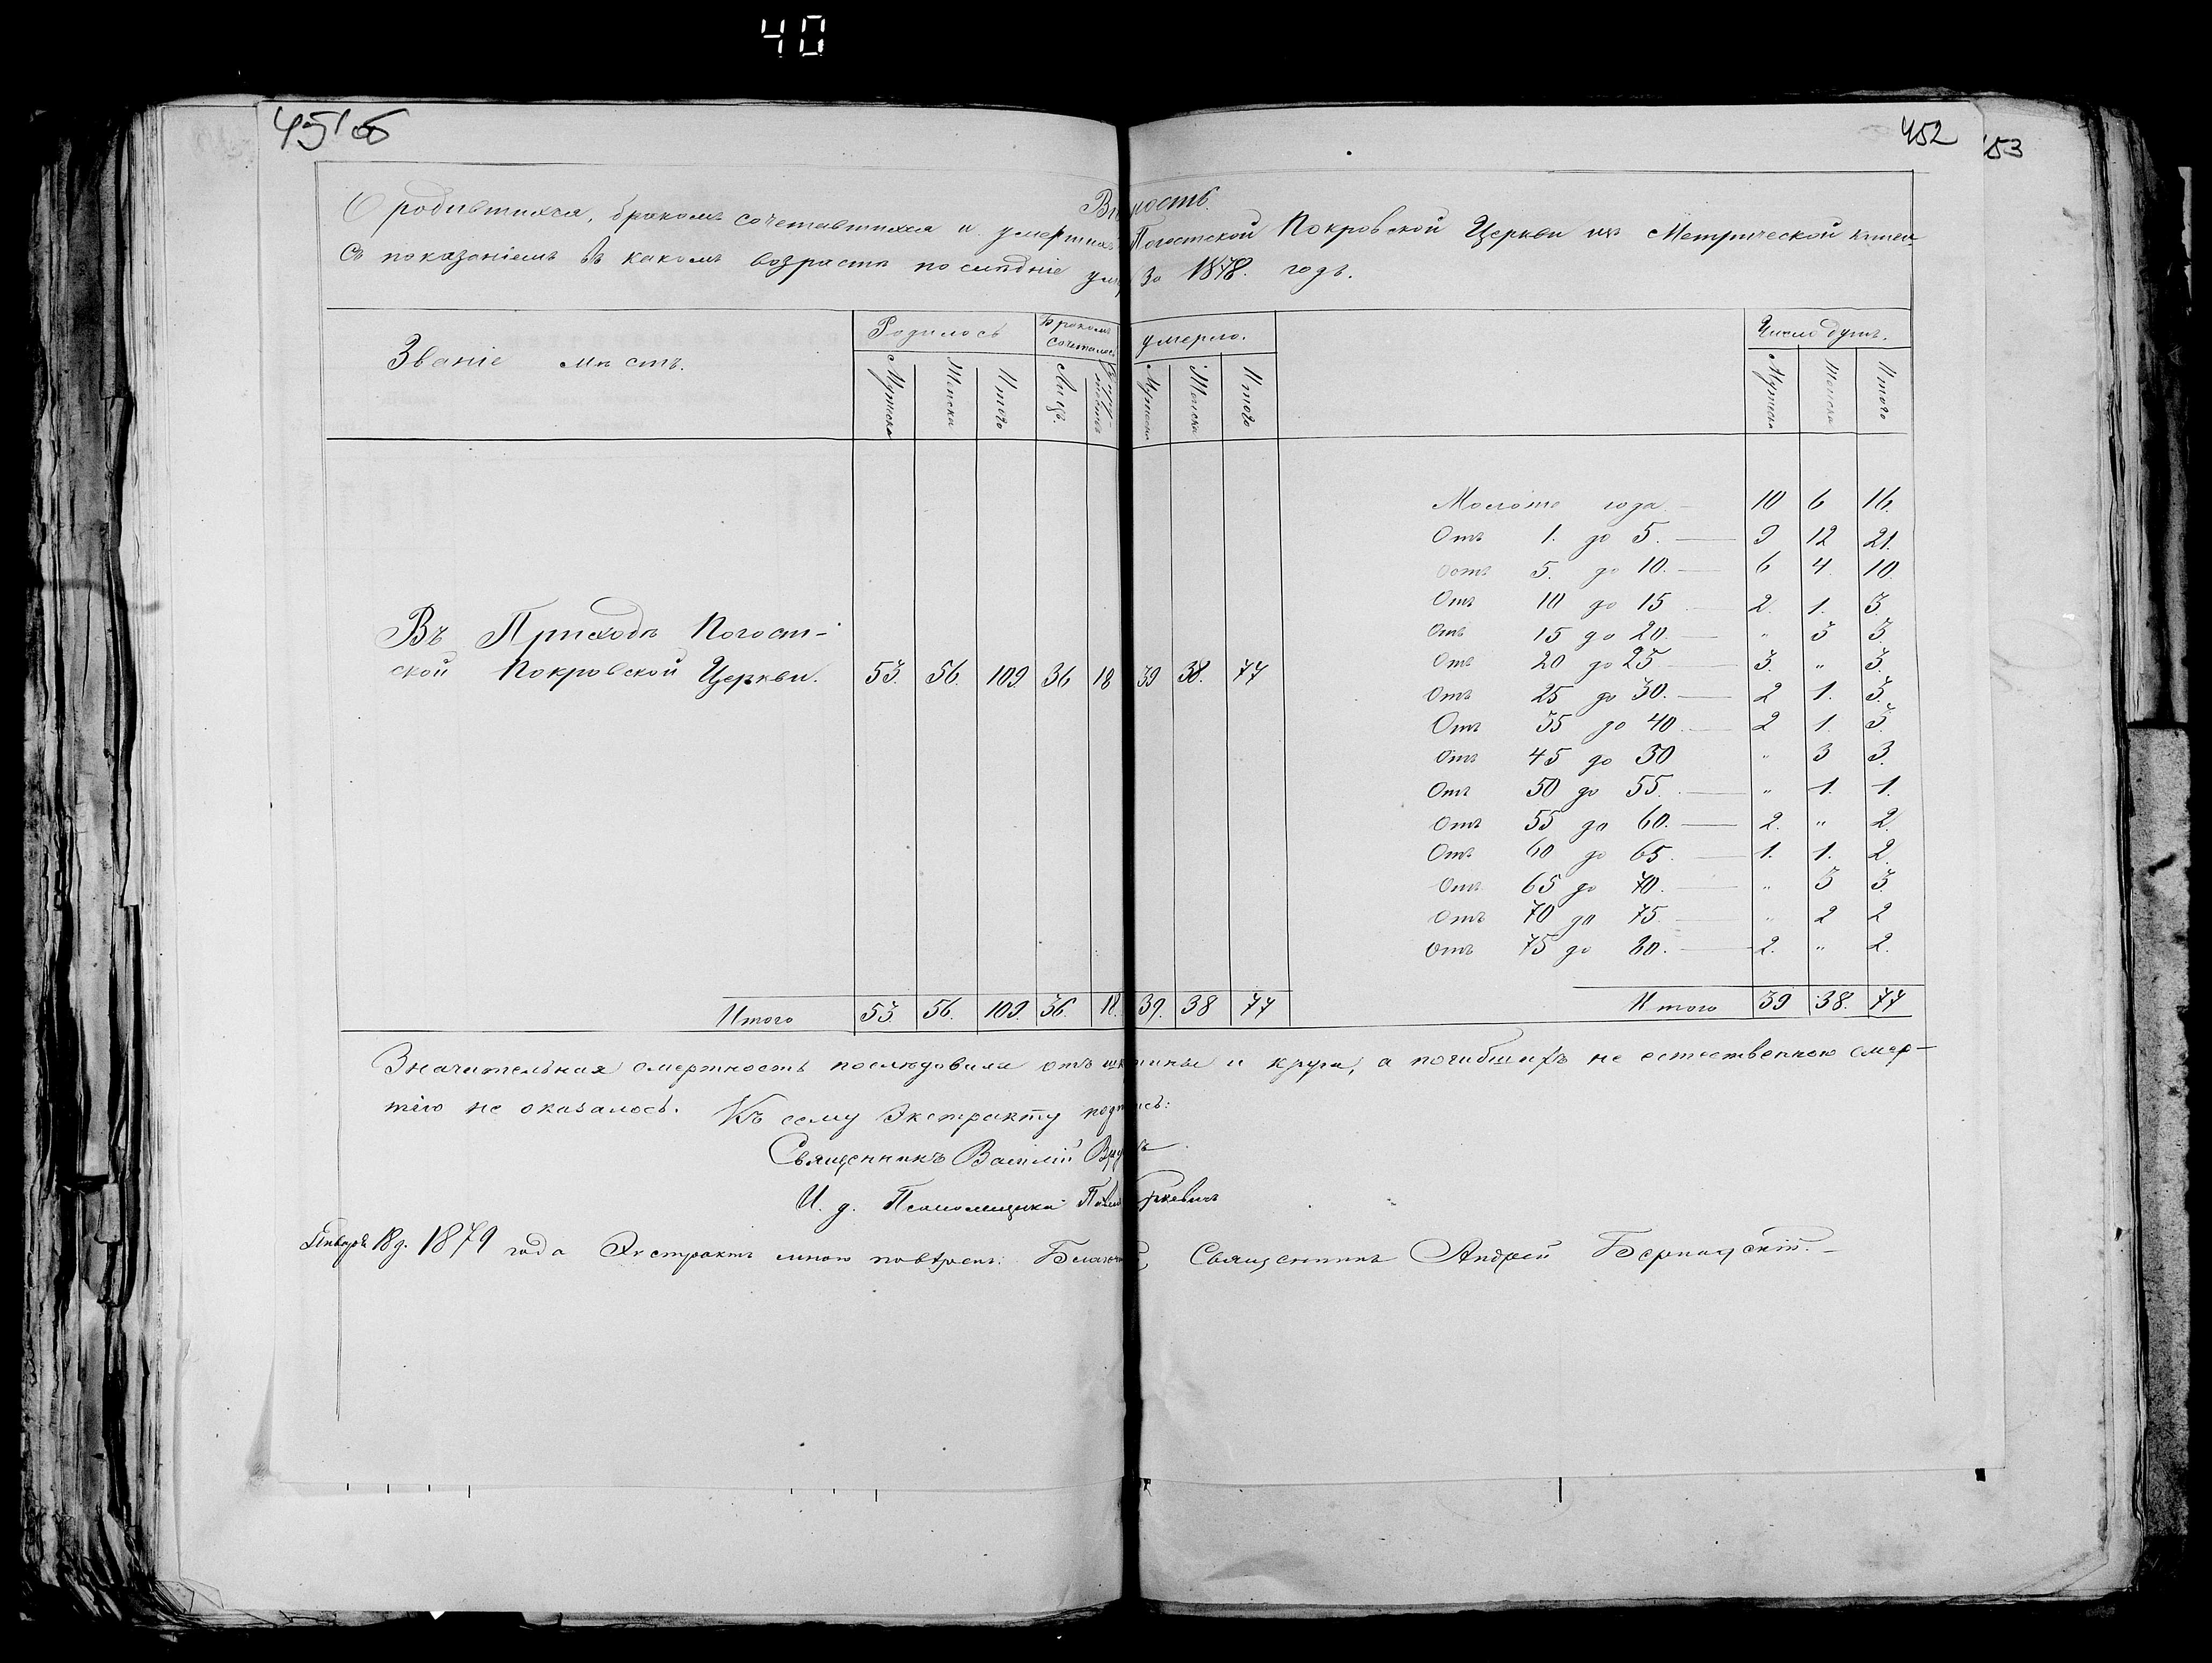 40
451об
452
153
О родившихся, бракомъ сочетавшихся и умершихъ Погостской Покровской Церкви изъ Метрической книги
Съ показаніемъ въ какомъ возрастѣ послѣдніе за 1878. годъ.
Званіе мѣстъ.
Родилось
Бракомъ сочеталось
умерло.
Число душъ.
Мужска
Женска
Итого
Лицъ.
Мужска
Женска
Итого
Мужска
Женска
Итого
Моложе года. — 10 6 16.
Отъ 1. до 5. — 9 12 21.
Остъ 5. до 10. — 6 4 10.
Отъ 10 до 15 — 2. 1. 3.
Отъ 15 до 20. — " 3 3.
Отъ 20 до 25 — 3. " 3.
Отъ 25 до 30. — 2 1. 3.
Отъ 35 до 40. — 2 1. 3.
Отъ 45 до 50 " 3 3.
Отъ 50 до 55. — " 1. 1.
Отъ 55 до 60. — 2. " 2.
Отъ 60 до 65. — 1. 1. 2.
Отъ 65 до 70. — " 3 3.
Отъ 70 до 75. — " 2 2
Отъ 75 до 80. — 2. " 2.
Въ Приходѣ Погост-
ской Покровской Церкви. 53. 56. 109. 36 18 39 38. 77
Итого 53. 56. 109. 36. 18. 39. 38 77
Итого 39 38. 77
Значительная смертность послѣдовала отъ и крупа, а погибшихъ не естественною смер-
тію не оказалось.
Къ сему Экстракту
Священникъ Василій
И. д. Псаломщика
Январь 18 д. 1879 года Экстрактъ мною повѣренъ: Священникъ Андрей